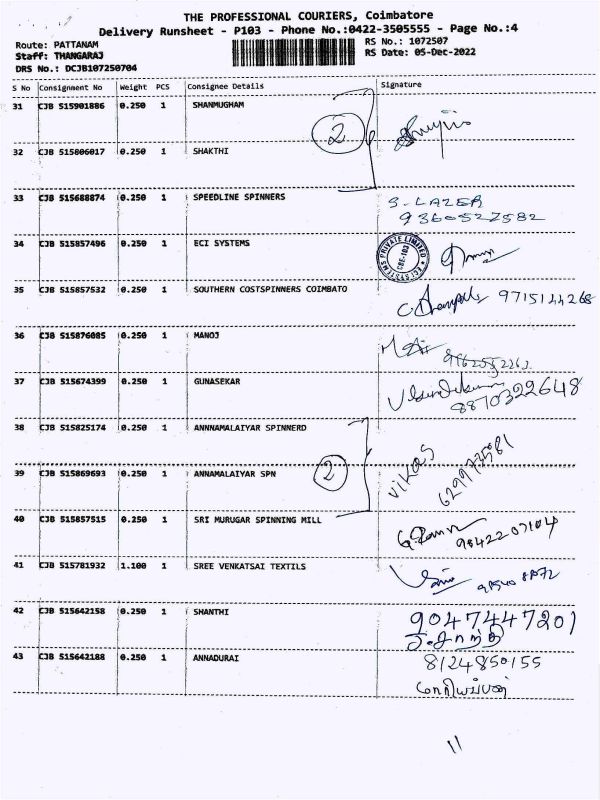 THE PROFESSIONAL COURIERS, Coimbatore
Delivery Runsheet - P103 - Phone No.:0422-3505555 - Page No.:4
Route: PATTANAM
RS No.: 1072507
Staff: THANGARAJ
RS Date: 05-Dec-2022
DRS No.: DCJB107250704
S No Consignment No Weight PCS Consignee Details Signature
31 CJB 515901886 0.250 1 SHANMUGHAM
2
32 CJB 515806017 0.250 1 SHAKTHI
33 CJB 515688874 0.250 1 SPEEDLINE SPINNERS S. LAZER
9360527582
34 CJB 515857496 0.250 1 ECI SYSTEMS
35 CJB 515857532 0.250 1 SOUTHERN COSTSPINNERS COIMBATO 9715144268
36 CJB 515876085 0.250 1 MANOJ
37 CJB 515674399 0.250 1 GUNASEKAR
8870322648
38 CJB 515825174 0.250 1 ANNNAMALAIYAR SPINNERD
2
39 CJB 515869693 0.250 1 ANNAMALAIYAR SPN vikas
40 CJB 515857515 0.250 1 SRI MURUGAR SPINNING MILL
41 CJB 515781932 1.100 1 SREE VENKATSAI TEXTILS
42 CJB 515642158 0.250 1 SHANTHI 9047447201
43 CJB 515642188 0.250 1 ANNADURAI 8124850155
11